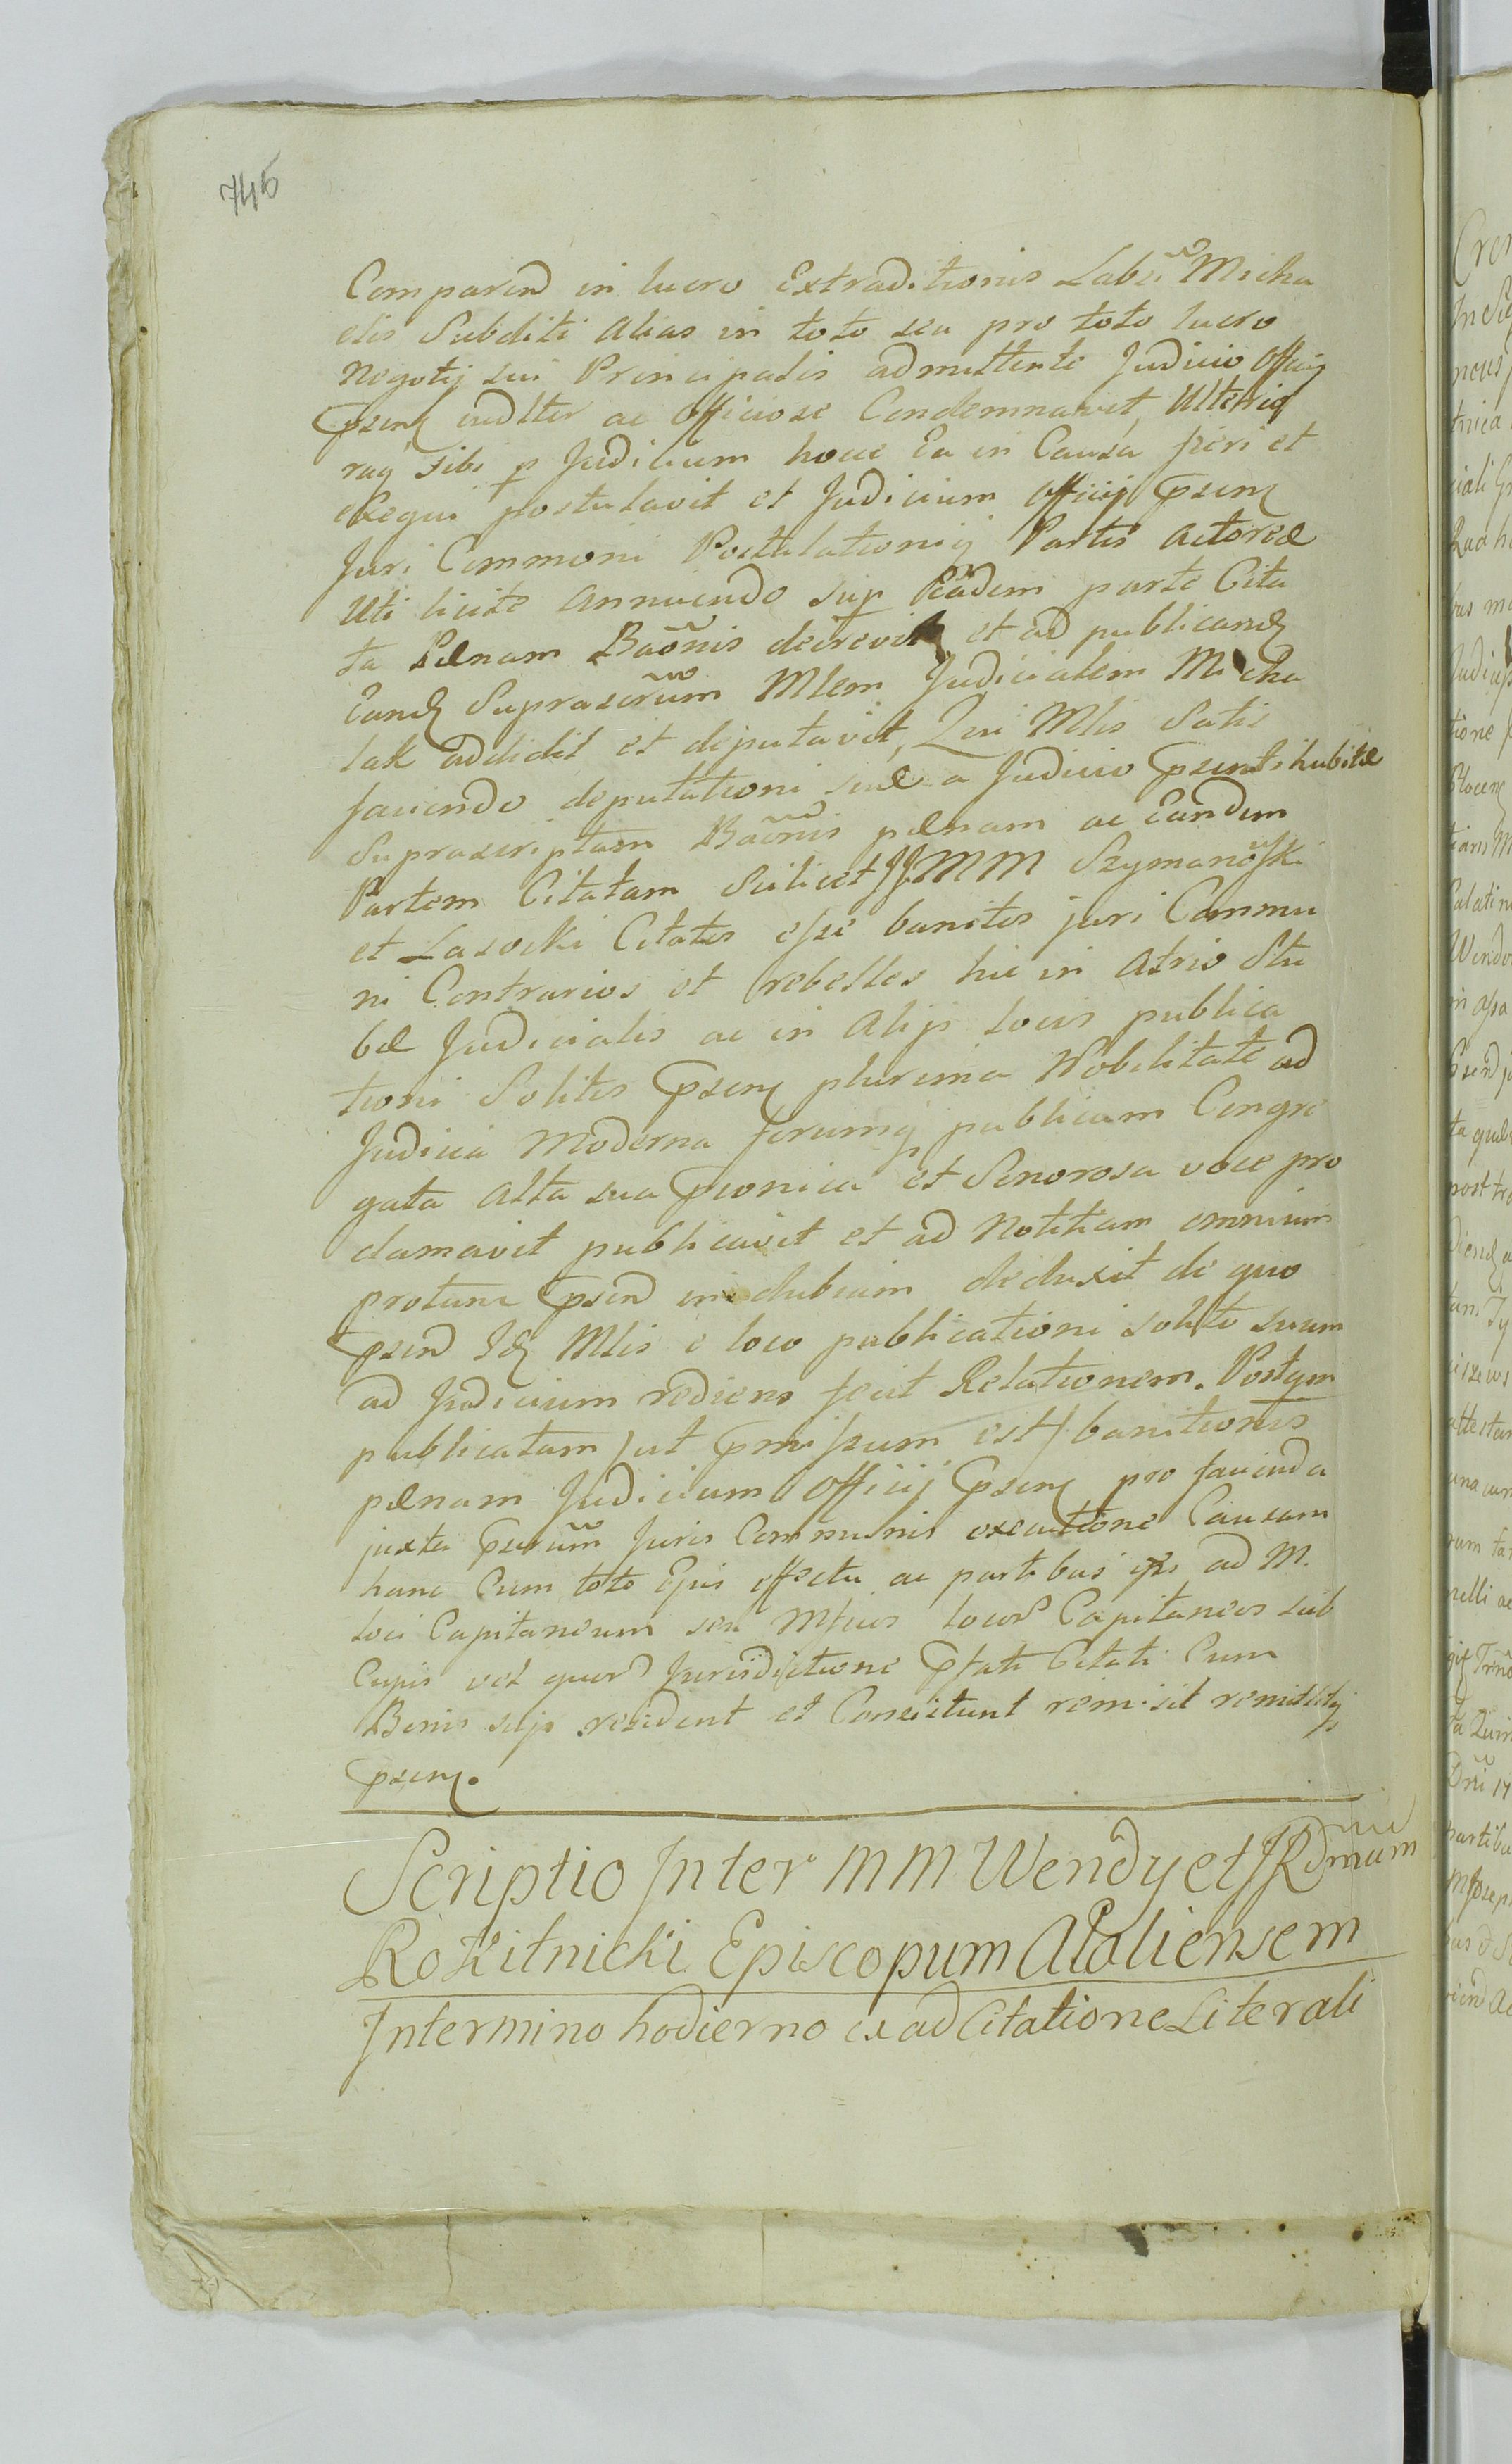 745
Comparend in lucro Extraditionis Labsi Micha
elis Subditi alias in toto seu pro toto lucro
Negotij sui Principalis admittente Judicio Officij
Pnsenq iudlter ac Officiose Condemnavit, Ulterio
raq sibi p Judicium hocce Ea in Causa fieri et
exequi postulavit et Judicium Officij Psenq
Juri Communi Postulationiq Partis Actoreæ
Uti licite Annuendo sup Eadem parte Cita
ta Pænam Baonis decrevit et ad publicand
Eandq Suprascrum Mlem Judicialem Micha
lak addidit et deputavit, Qui Mlis Satis
faciendo deputationi suæ a Judicio Psenti habitæ
Suprascriptam Baonis pænam ac Eandem
Partem Citatam Scilicet JJMM Szymanowski
et Lasocki Citatos esse banitos juri Commu
ni Contrarios et rebelles hic in Atrio Stu
bæ Judicialis ac in Alijs locis publica
tioni Solitis Psenq plurima Nobilitate ad
Judicia Moderna forumq publicum Congre
gata Alta sua Pconica et Sonorosa voce pro
clamavit publicavit et ad Notitiam omnium
protunc Psend in dubium deduxit de quo
Psend Idq Mlis e loco publicationi solito suum
ad Judicium rediens fecit Relationem. Postqm
publicatam ut Pmissum est banitionis
pænam Judicium Officij Psenq pro facienda
juxta Pscrum Juris Communis executione Causam
hanc Cum toto Ejus effectu ac partibus ipsis ad M.
loci Capitaneum seu Mfcos locord Capitaneos sub
Cujus vel quord Jurisdictione Pfati Citati Cum
Bonis suis resident et Consistunt remisit remittitq
Psenq.
Scriptio Inter MM Wendy et JRdmum
Rokitnicki Episcopum Ataliensem
Intermino hodierno ex ad Citatione Literali